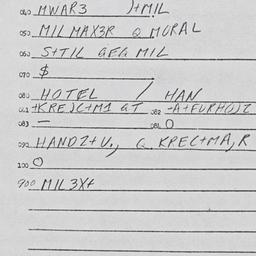 040 MWAR3 )+MIL
050 MIL MAX3R Q MURAL
060 S+TIL GEG MIL
070 $
080 HOTEL / HAN
081 +KRE)C+M1 GT 082 -A+EURH()2
083 — 084 O
090 HANDZ+U., Q KPEC+MA,R
100 O
900 MIL 3X+